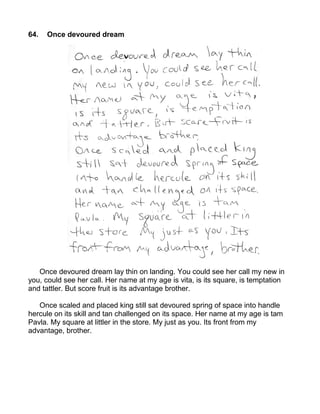 64. Once devoured dream
Once devoured dream lay thin
on landing. You could see her call
my new in you, could see her call.
Her name at my age is vita,
is its square, is temptation
and tattler. But scare fruit is
its advantage brother.
Once scaled and placed king
still sat devoured spring of space
into handle hercule on its skill
and tan challenged on its space.
Her name at my age is tam
Pavla. My square at littler in
the store My just as you. Its
front from my advantage, brother.
Once devoured dream lay thin on landing. You could see her call my new in
you, could see her call. Her name at my age is vita, is its square, is temptation
and tattler. But score fruit is its advantage brother.
Once scaled and placed king still sat devoured spring of space into handle
hercule on its skill and tan challenged on its space. Her name at my age is tam
Pavla. My square at littler in the store. My just as you. Its front from my
advantage, brother.